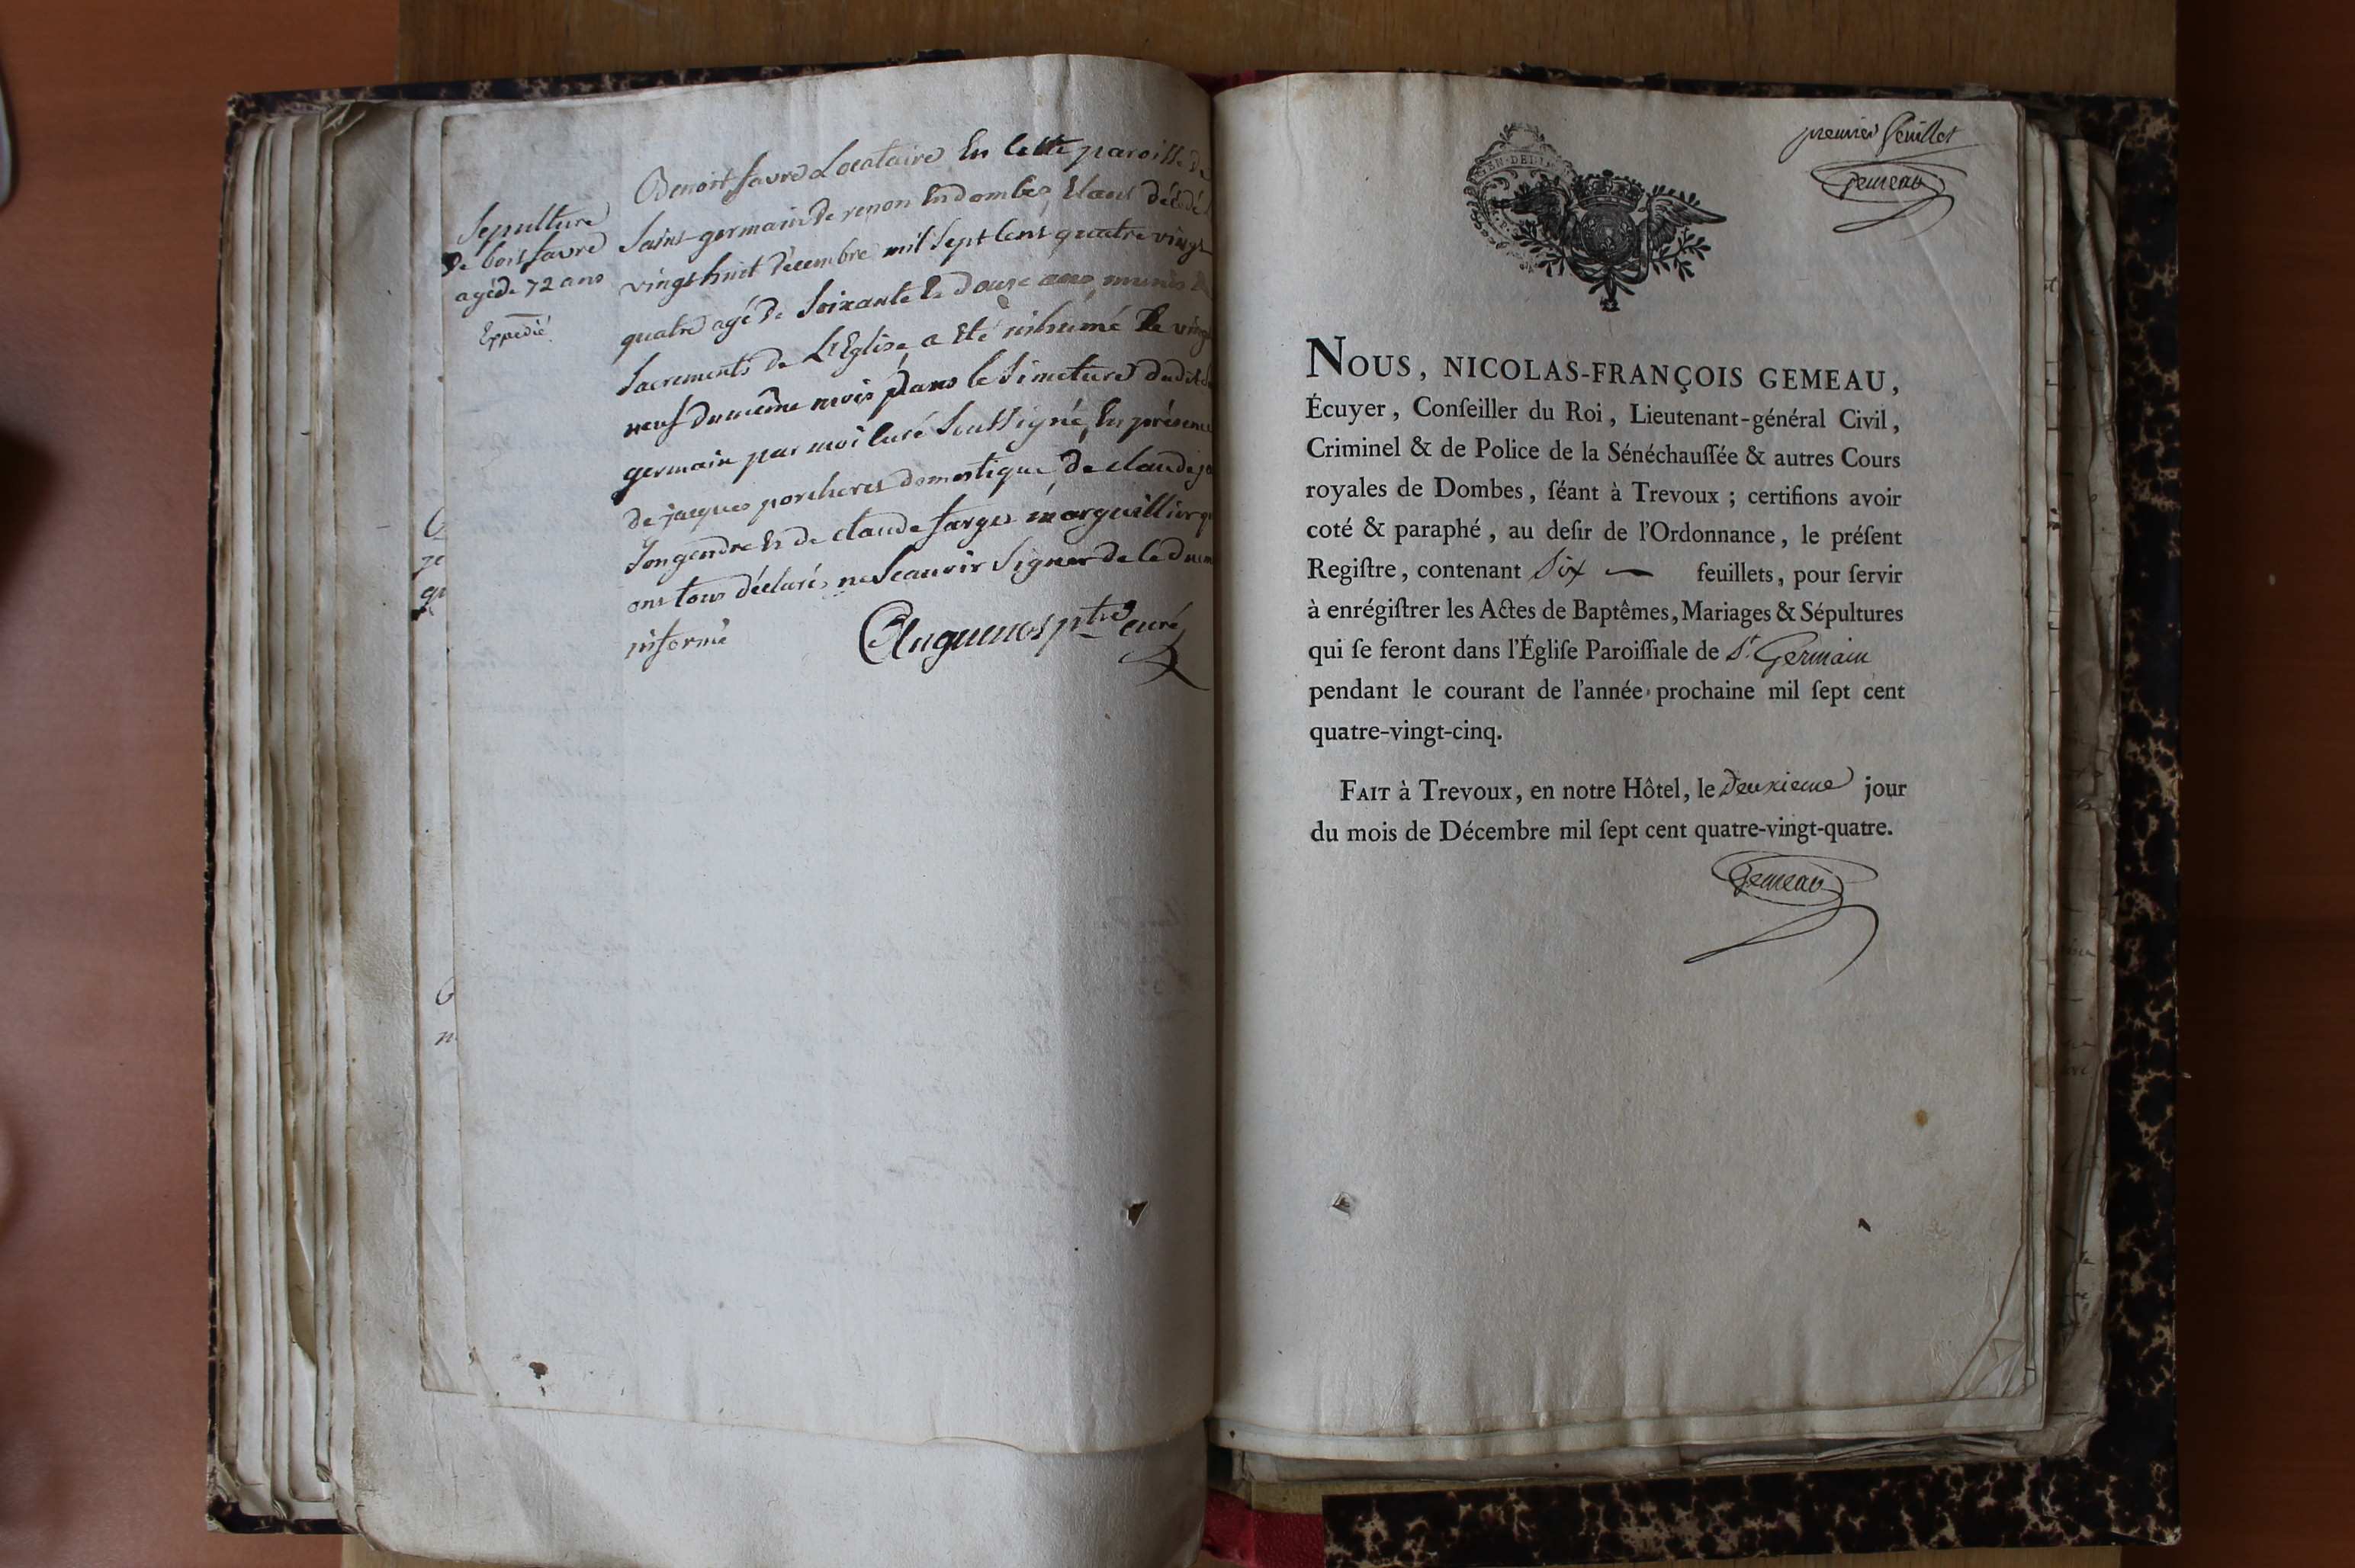 Sepulture
de boit favre
agé de 72 ans
Expedié
Benoit favre Locataire En Cette paroisse de
Saint germain de renon En dombes, Etant décédé
vingt huit décembre mil Sept Cent quatre vingt
quatre agé de Soixante Et Douze ans, munis d
Sacrements de L'Eglise, a Eté inhumé Le vingt
neuf du même mois Dans le Simetiere dudit
germain par moi Curé Soussigné, En présence
de jacques porcheres domestique, de claude
Son gendre Et de claude farges marguillier q
ont tous déclarés ne Scauvoir Signer de Ce
informé
ptre curé
premier feuillet
Gemeau
NOUS, NICOLAS-FRANÇOIS GEMEAU,
Écuyer, Conſeiller du Roi, Lieutenant-général Civil,
Criminel & de Police de la Sénéchauſſée & autres Cours
royales de Dombes, ſéant à Trevoux ; certifions avoir
coté & paraphé, au deſir de l'Ordonnance, le préſent
Regiſtre, contenant Six feuillets, pour ſervir
à enrégiſtrer les Actes de Baptêmes, Mariages & Sépultures
qui ſe feront dans l'Égliſe Paroiſſiale de St. Germain
pendant le courant de l'année prochaine mil ſept cent
quatre-vingt-cinq.
FAIT à Trevoux, en notre Hôtel, le Deuxieme jour
du mois de Décembre mil ſept cent quatre-vingt-quatre.
Gemeau